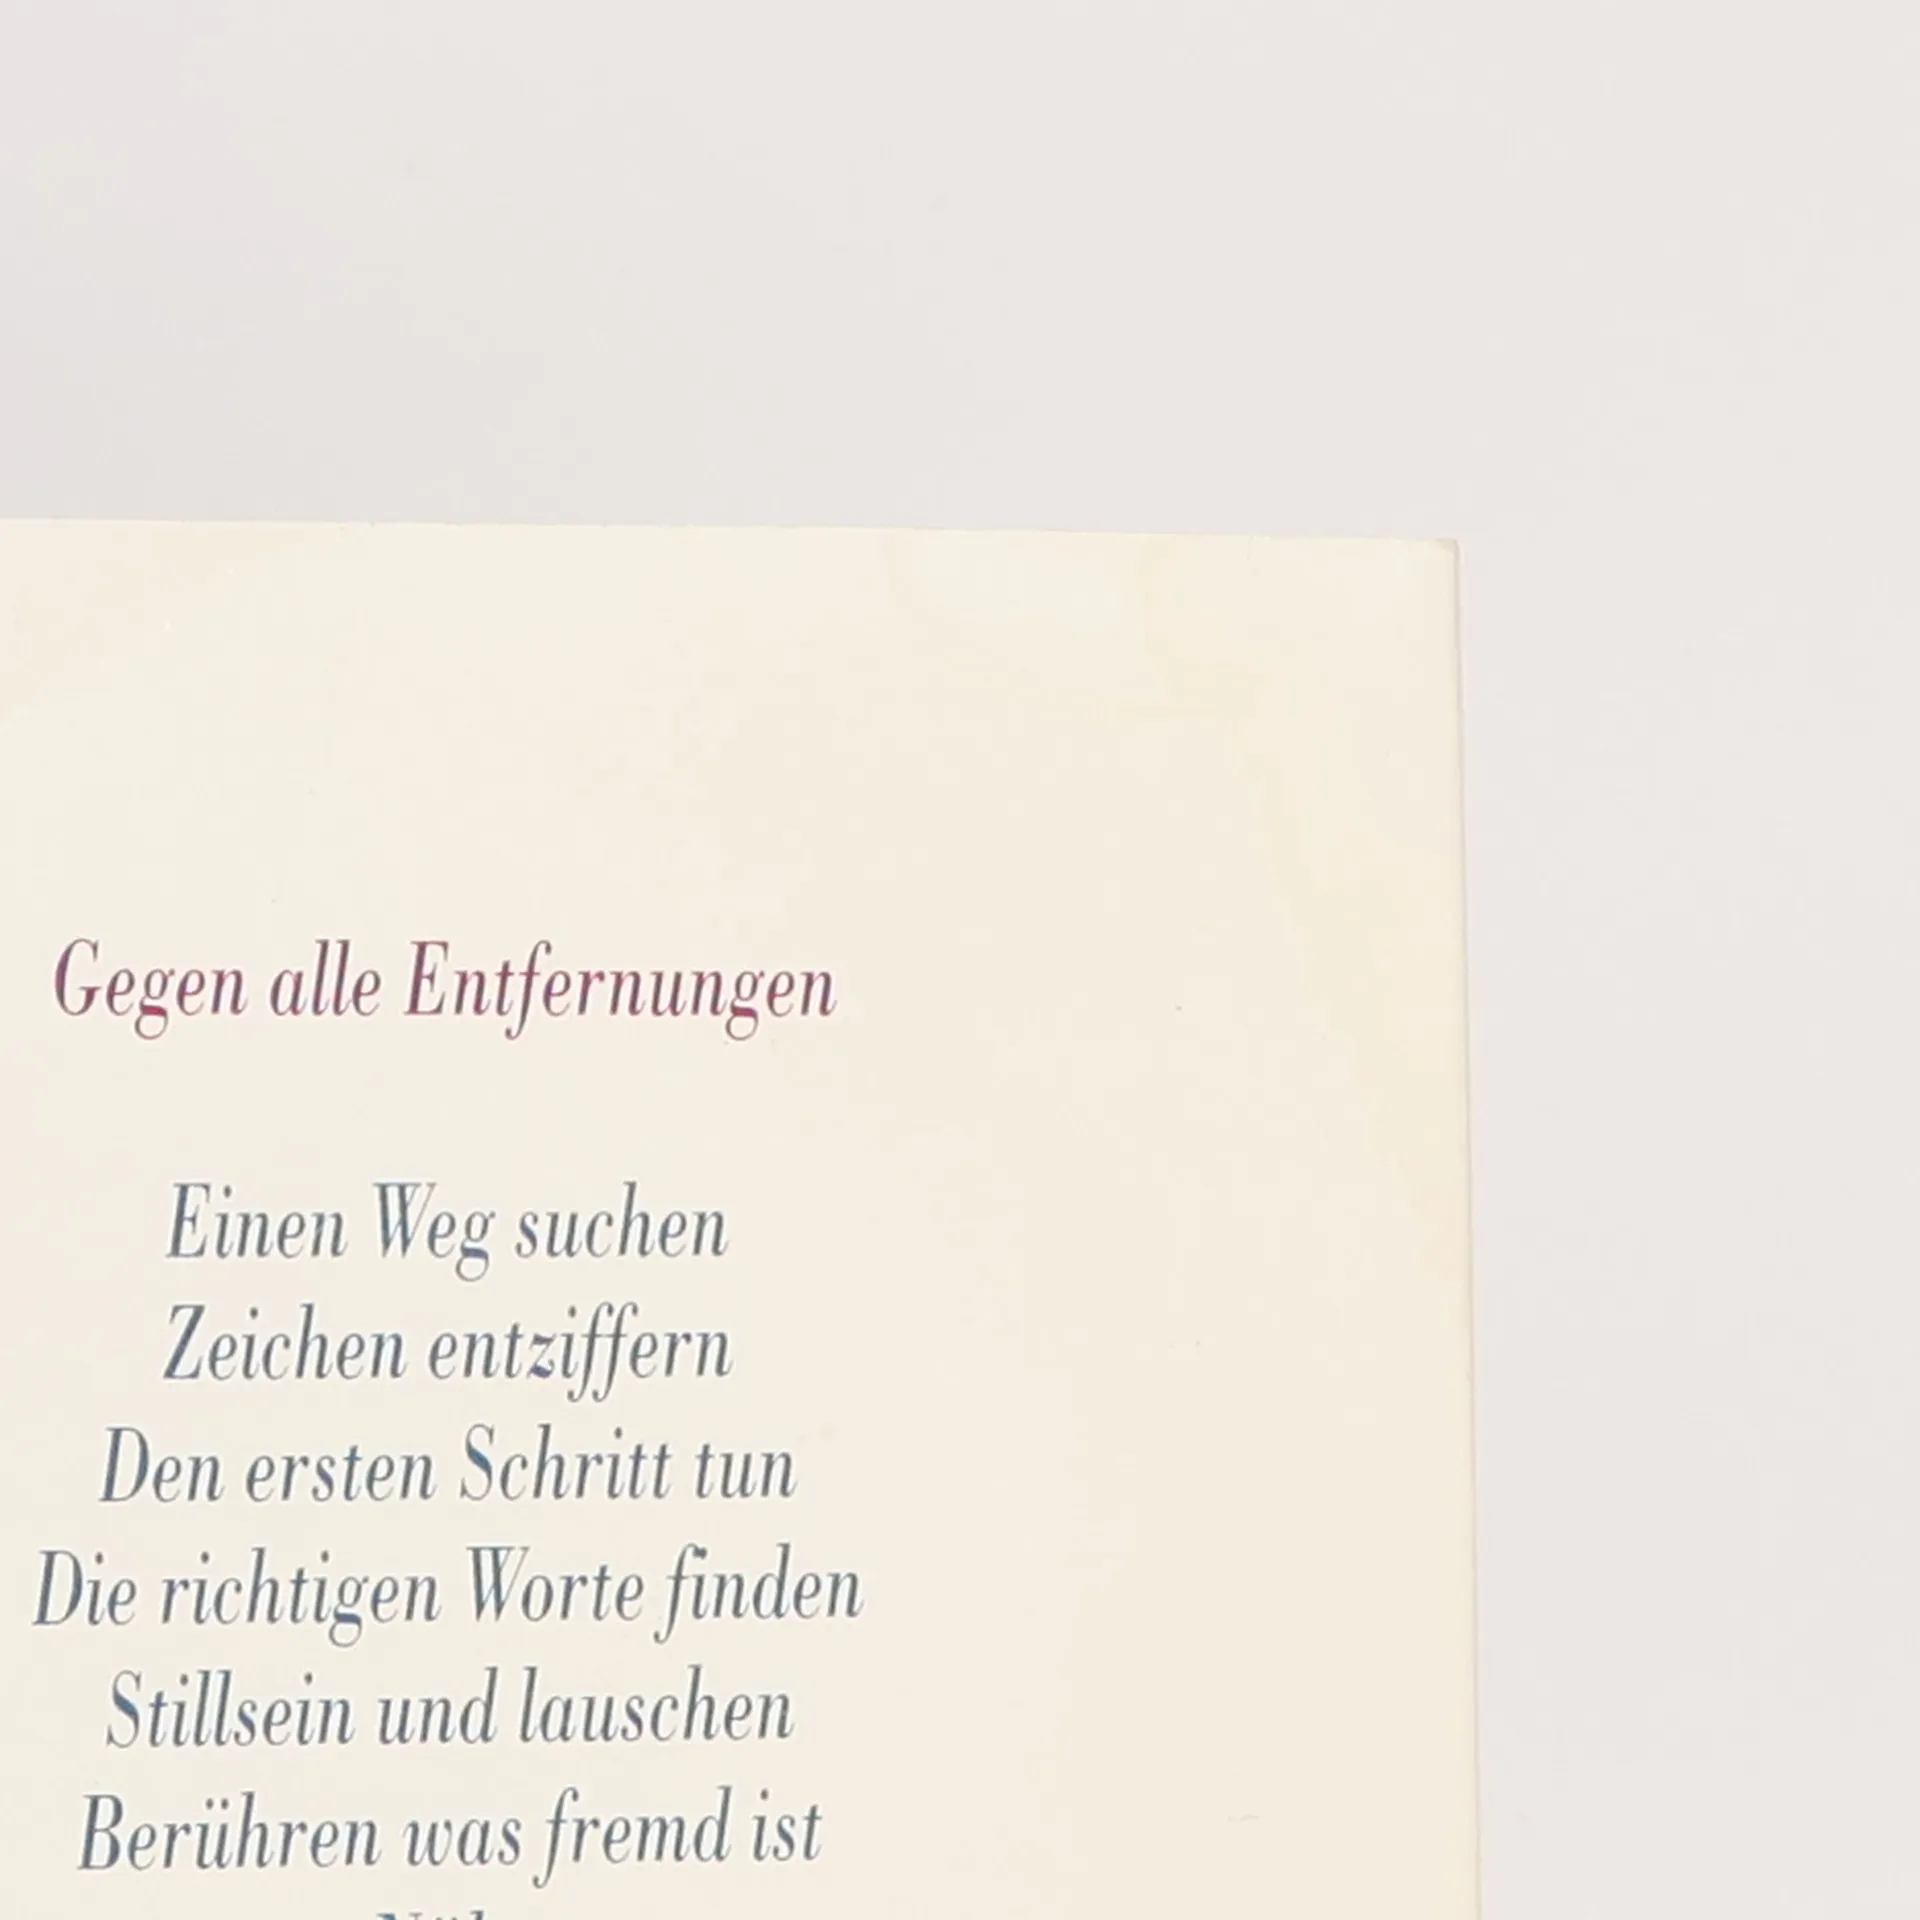 Gegen alle Entfernungen
Einen Weg suchen
Zeichen entziffern
Den ersten Schritt tun
Die richtigen Worte finden
Stillsein und lauschen
Berühren was fremd ist